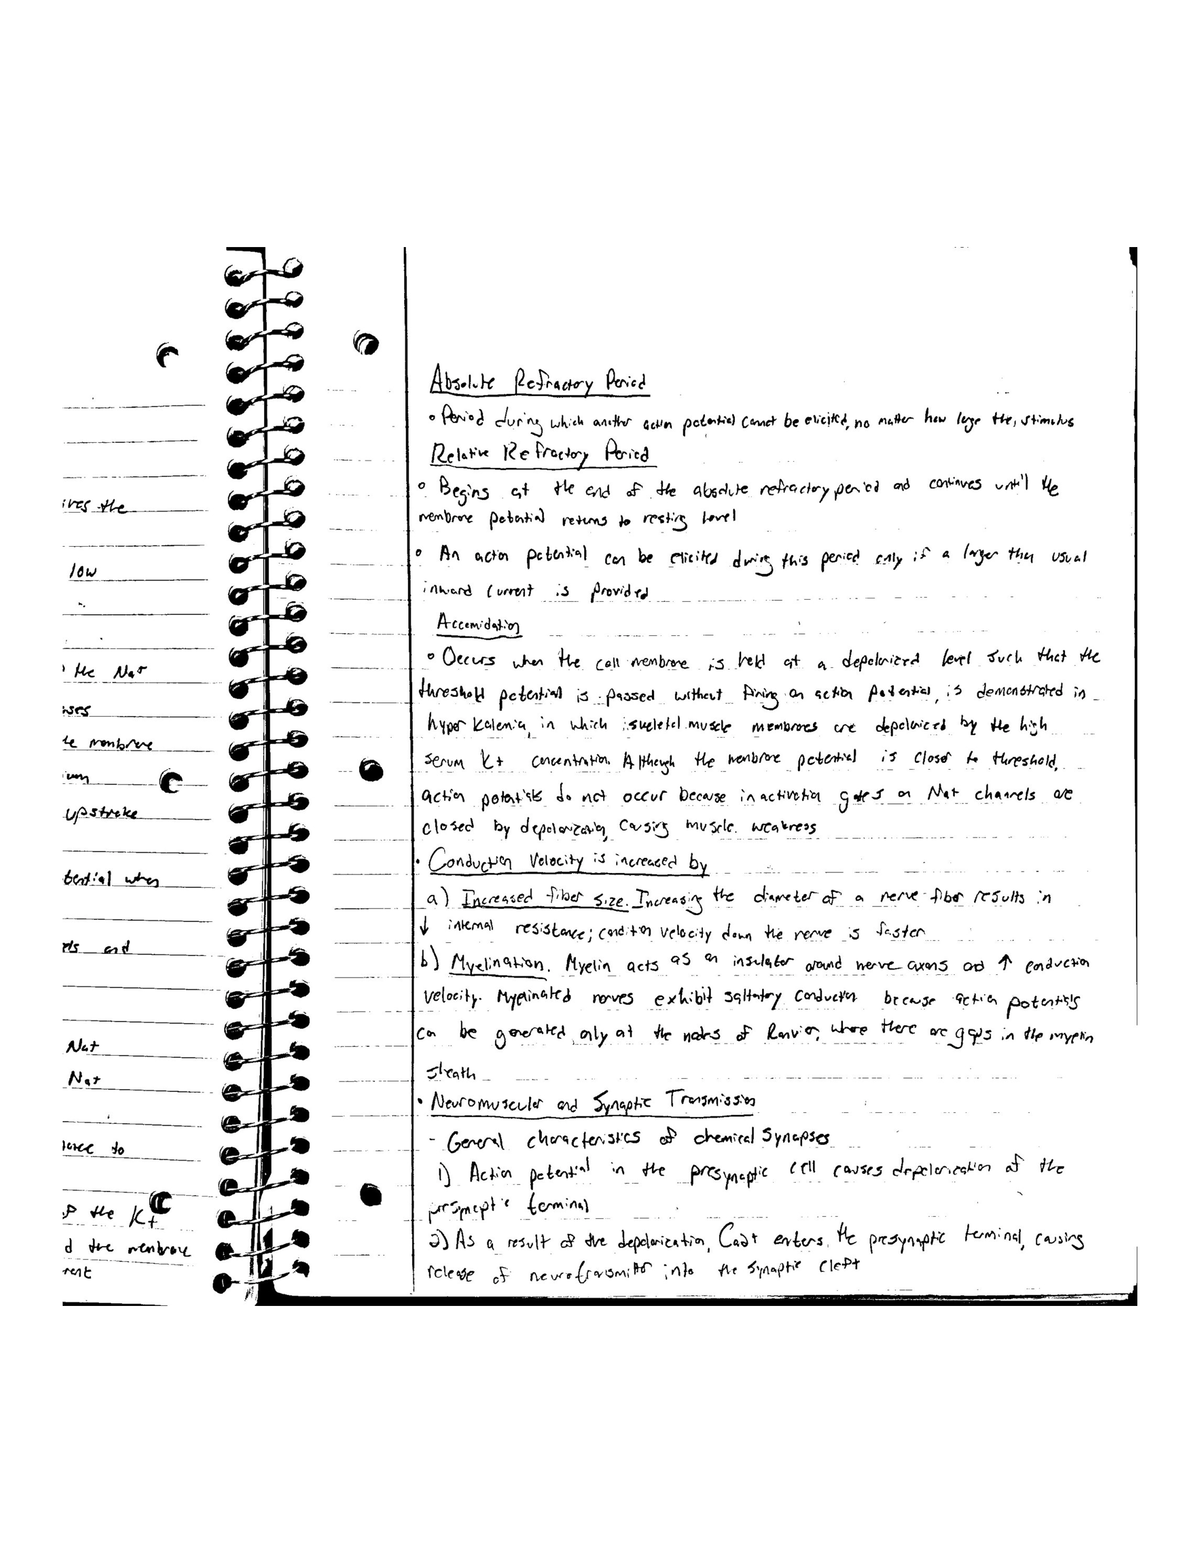 ives the
low
the Na+
ises
membrane
upstroke
tential when
els and
Na+
Na+
to
of the K+
d the membrane
rent
Absolute Refractory Period
° Period during which another action potential cannot be elicited, no matter how large the stimulus
Relative Refractory Period
° Begins at the end of the absolute refractory period and continues until the
membrane potential returns to resting level
° An action potential can be elicited during this period only if a larger than usual
inward current is provided
Accomidation
° Occurs when the cell membrane is held at a depolarized level such that the
threshold potential is passed without firing an action potential, is demonstrated in
hyperkalemia, in which skeletal muscle membranes are depolarized by the high
serum K+ concentration. Although the membrane potential is closer to threshold,
action potentials do not occur because inactivation gates on Na+ channels are
closed by depolarization, causing muscle weakness
• Conduction Velocity is increased by
a) Increased fiber size. Increasing the diameter of a nerve fiber results in
↓ internal resistance; condition velocity down the nerve is faster
b) Myelination. Myelin acts as an insulator around nerve axons and ↑ conduction
velocity. Myelinated nerves exhibit saltatory conduction because action potentials
can be generated only at the nodes of Ranvier, where there are gaps in the myelin
sheath
• Neuromuscular and Synaptic Transmission
- General characteristics of chemical synapses
1) Action potential in the presynaptic cell causes depolarization of the
presynaptic terminal
2) As a result of the depolarization, Ca2+ enters the presynaptic terminal, causing
release of neurotransmitter into the synaptic cleft